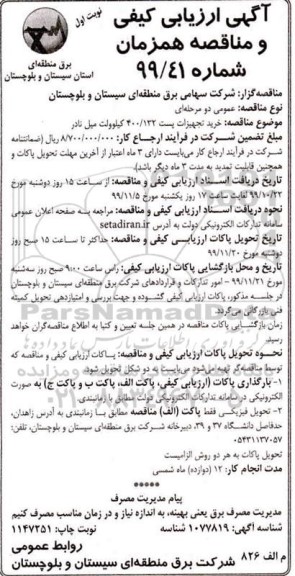 آگهی ارزیابی کیفی
و مناقصه همزمان
شماره ۹۹/۴۱
نوبت اول
برق منطقه‌ای
استان سیستان و بلوچستان
مناقصه‌گزار: شرکت سهامی برق منطقه‌ای سیستان و بلوچستان
نوع مناقصه: عمومی دو مرحله‌ای
موضوع مناقصه: خرید تجهیزات پست ۴۰۰/۱۳۲ کیلوولت میل نادر
مبلغ تضمین شرکت در فرآیند ارجاع کار: ۸/۷۰۰/۰۰۰/۰۰۰ ریال (ضمانتنامه
شرکت در فرآیند ارجاع کار می‌بایست دارای ۳ ماه اعتبار از آخرین مهلت تحویل پاکات و
همچنین قابلیت تمدید به مدت ۳ ماه دیگر باشد).
تاریخ دریافت اسناد ارزیابی کیفی و مناقصه: از ساعت ۱۵ روز دوشنبه مورخ
۹۹/۱۰/۲۲ لغایت ساعت ۱۷ روز یکشنبه مورخ ۹۹/۱۱/۵
نحوه دریافت اسناد ارزیابی کیفی و مناقصه: مراجعه به صفحه اعلان عمومی
سامانه تدارکات الکترونیکی دولت به آدرس setadiran.ir
تاریخ تحویل پاکات ارزیابی کیفی و مناقصه: حداکثر تا ساعت ۱۵ صبح روز
دوشنبه مورخ ۹۹/۱۱/۲۰
تاریخ و محل بازگشایی پاکات ارزیابی کیفی: راس ساعت ۹:۰۰ صبح روز سه‌شنبه
مورخ ۹۹/۱۱/۲۱ – امور تدارکات و قراردادهای شرکت برق منطقه‌ای سیستان و بلوچستان
در جلسه مذکور، پاکات ارزیابی کیفی گشوده و جهت بررسی و امتیازدهی تحویل کمیته
فنی بازرگانی می‌گردد.
زمان بازگشایی پاکات مناقصه در همین جلسه تعیین و کتبا به اطلاع مناقصه‌گران خواهد
رسید.
نحوه تحویل پاکات ارزیابی کیفی و مناقصه: پاکات ارزیابی کیفی و مناقصه که
توسط مناقصه‌گر تهیه می‌شود می‌بایست به دو شکل تحویل شود.
۱- بارگذاری پاکات (ارزیابی کیفی، پاکت الف، پاکت ب و پاکت ج) به صورت
الکترونیکی در سامانه تدارکات الکترونیکی دولت مطابق با زمانبندی.
۲- تحویل فیزیکی فقط پاکت (الف) مناقصه مطابق با زمانبندی به آدرس زاهدان،
حدفاصل دانشگاه ۳۷ و ۳۹، دبیرخانه شرکت برق منطقه‌ای سیستان و بلوچستان، تلفن:
۰۵۴۳۱۱۳۷۰۵۷
تحویل پاکات به هر دو روش الزامیست
مدت انجام کار: ۱۲ (دوازده) ماه شمسی
پیام مدیریت مصرف
مدیریت مصرف برق یعنی بهینه، به اندازه نیاز و در زمان مناسب مصرف کنیم
شناسه آگهی: ۱۰۷۷۸۱۹ شناسه نوبت چاپ: ۱۱۴۷۲۵۱
روابط عمومی
م الف ۸۲۶ شرکت برق منطقه‌ای سیستان و بلوچستان